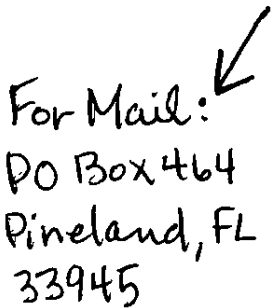 For Mail:
PO Box 464
Pineland, FL
33945